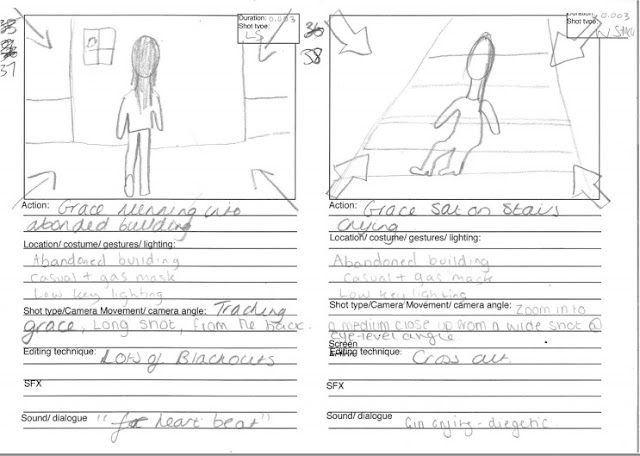 37
Duration: 0.003
Shot type:
LS
Action: Grace running into
abonded building
Location/ costume/ gestures/ lighting:
Abandoned building
casual + gas mask
Low key lighting
Shot type/Camera Movement/ camera angle: Tracking
grace, Long shot, from the back.
Editing technique: Lots of Blackouts
SFX
Sound/ dialogue "heart beat"
38
Duration: 0.003
Shot type:
Action: Grace sat on stairs
crying
Location/ costume/ gestures/ lighting:
Abandoned building
casual + gas mask
Low key lighting
Shot type/Camera Movement/ camera angle: Zoom in to
a medium close up from a wide shot @
eye-level angle
Screen
Editing technique: Cross cut
SFX
Sound/ dialogue crying - diegetic